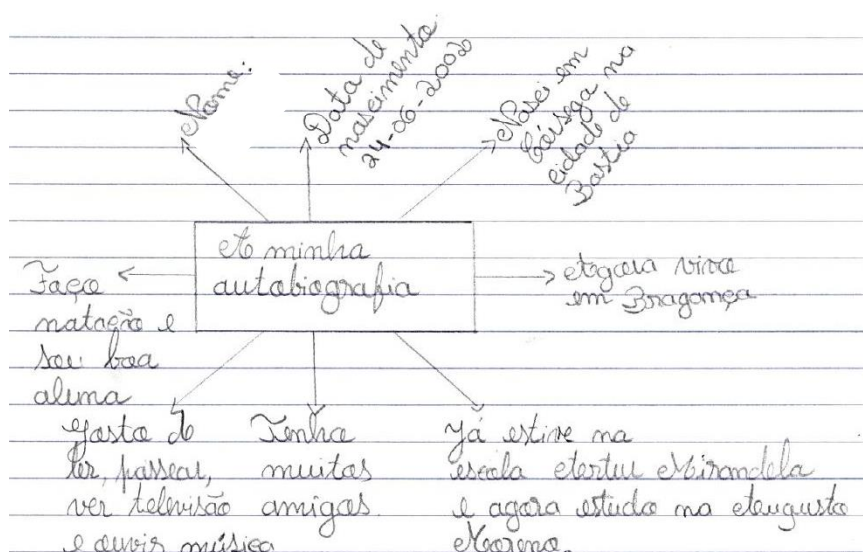 Nome:
Data de
nascimento
24-06-2002
Nasci em
Córsega na
cidade de
Bastia
A minha
autobiografia
Agora vivo
em Bragança
Faço
natação e
sou boa
aluna
Gosto de
ler, passear,
ver televisão
e ouvir música
Tenho
muitos
amigos
Já estive na
escola Artur Mirandela
e agora estudo na Augusto
Moreno.